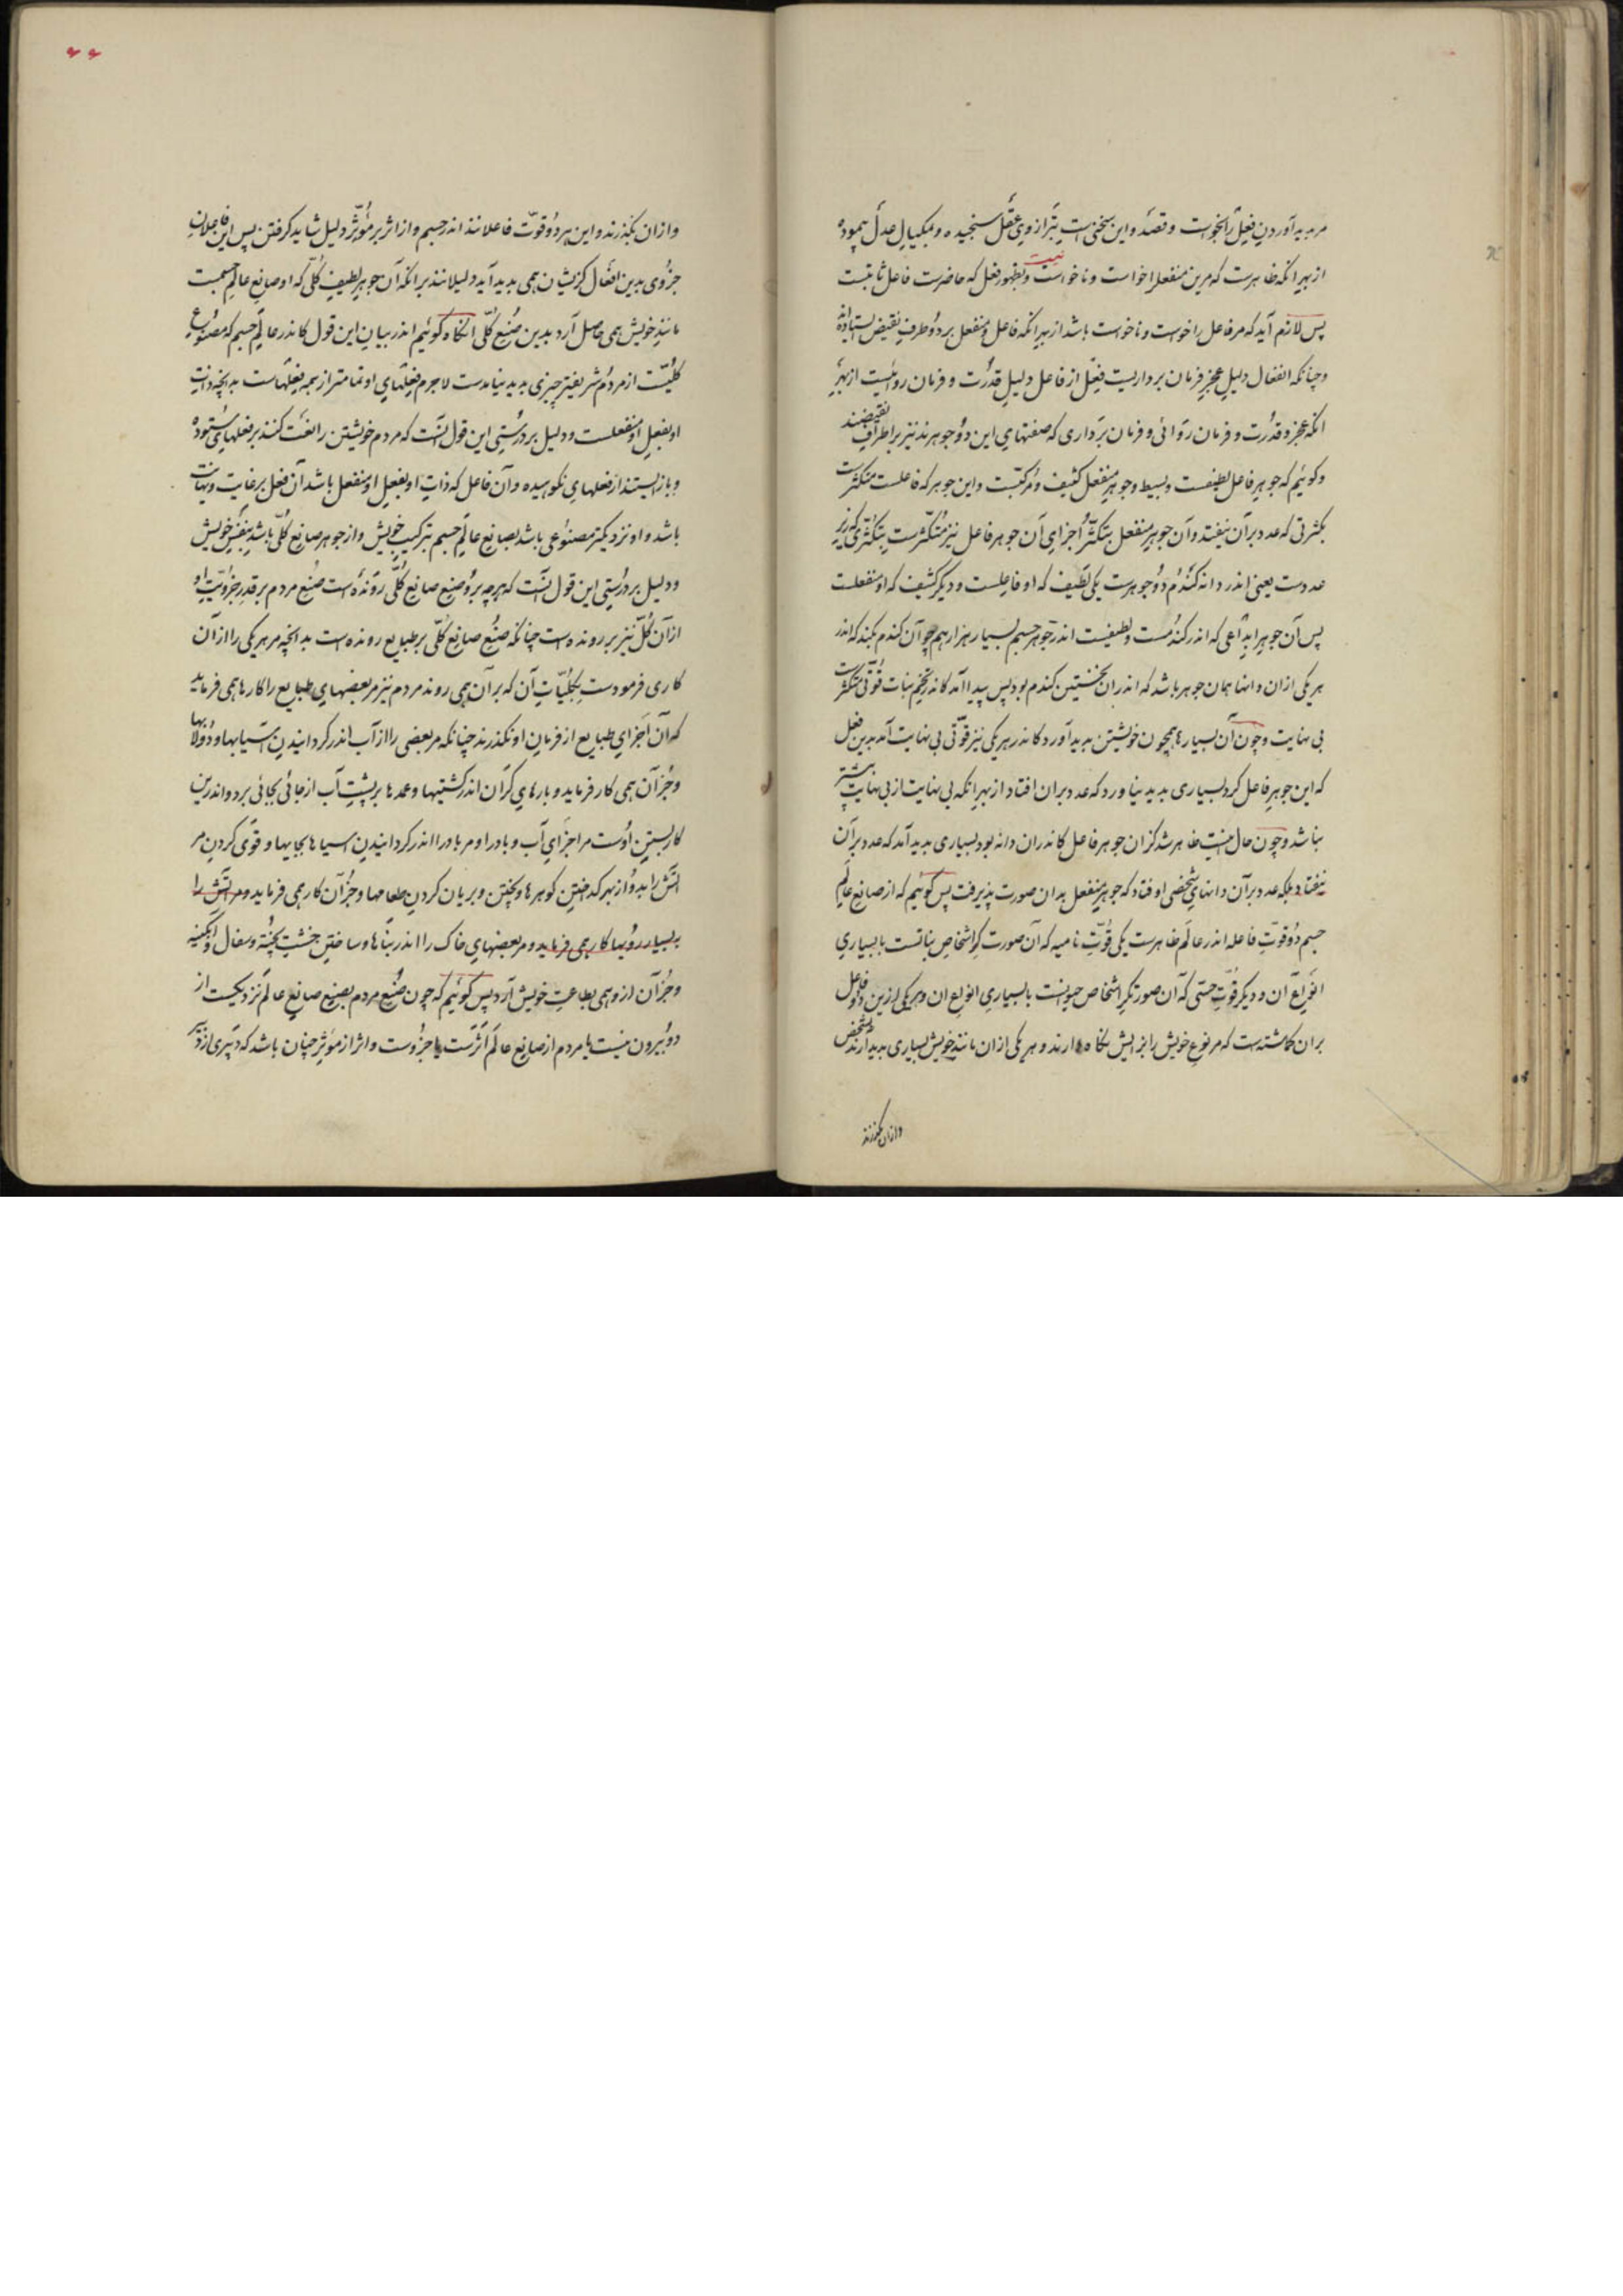 مر پدید آوردن فعل را بخواست و قصد و این سخنی است بترازوی عقل سنجیده و بمکیال عدل پیموده
از بهر آنکه ظاهرست که مرین منفعل را خواست و ناخواست نیست و بظهور فعل که حاضرست فاعل ثابتست
پس لازم آید که مر فاعل را خواست و ناخواست باشد از بهر آنکه فاعل و منفعل بر دو طرف نقیض ایستاده‌اند
و چنانکه انفعال دلیل عجز و فرمان برداریست فعل از فاعل دلیل قدرت و فرمان روائیست از بهر
آنکه عجز و قدرت و فرمان روائی و فرمان برداری که صفتهای این دو جوهرند نیز بر اطراف نقیضند
و گوئیم که جوهر فاعل لطیفست و بسیط و جوهر منفعل کثیف و مرکبست و این جوهر که فاعلست متکثرست
بکثرتی که عدد بر آن نیفتد و آن جوهر منفعل بتکثر اجزای آن جوهر فاعل نیز متکثرست بتکثری که زیر
عددست یعنی اندر دانه گندم دو جوهرست یکی لطیف که او فاعلست و دیگر کثیف که او منفعلست
پس آن جوهر ابداعی که اندر گندمست و لطیفست اندر جوهر جسم بسیار هزار همچو آن گندم بکند که اندر
هر یکی ازان دانها همان جوهر باشد که اندران نخستین گندم بود پس پیدا آمد کاندر تخم نبات قوتی متکثرست
بی نهایت و چون آن بسیارها همچون خویشتن پدید آورد کاندر هر یکی نیز قوتی بی نهایت آمد بدین فعل
که این جوهر فاعل کرد بسیاری پدید نیاورد که عدد بران افتاد از بهر آنکه بی نهایت از بی نهایت بیشتر
نباشد و چون حال اینست ظاهر شد کزان جوهر فاعل کاندران دانه بود بسیاری پدید آمد که عدد بر آن
نیفتاد بلکه عدد بر آن دانهای شخصی اوفتاد که جوهر منفعل بدان صورت پذیرفت پس گوییم که از صانع عالم
جسم دو قوت فاعله اندر عالم ظاهرست یکی قوت نامیه که آن صورت گر اشخاص نباتست با بسیاری
انواع آن و دیگر قوت حسی که آن صورتگر اشخاص حیوانست با بسیاری انواع ان و هر یکی ازین دو فاعل
بران گماشته است که مر نوع خویش را بزایش نگاه دارند و هر یکی ازان مانند خویش بسیاری پدید آرند بشخص
وازان نگذرند
وازان نگذرند و این هر دو قوت فاعلانند اندر جسم و از اثر بر مؤثر دلیل شاید گرفتن پس این فاعلان
جزوی بدین افعال کزیشان همی پدید آید دلیلانند بر آنکه آن جوهر لطیف کلی که او صانع عالم جسمست
مانند خویش همی حاصل آرد بدین صنع کلی آنگاه گوئیم اندر بیان این قول کاندر عالم جسم که مصنوع
کلیست از مردم شریفتر چیزی پدید نیامدست لاجرم فعلهای او تمامتر از همه فعلهاست بدانچه ذات
او بفعل او منفعلست و دلیل بر درستی این قول آنست که مردم خویشتن را بعنف کنند بر فعلهای ستوده
و باز ایستند از فعلهای نکوهیده و آن فاعل که ذات او بفعل او منفعل باشد آن فعل بر غایت و نهایت
باشد و او نزدیکتر مصنوعی باشد بصانع عالم جسم بترکیب خویش و از جوهر صانع کلی باشد بنفس خویش
و دلیل بر درستی این قول آنست که هرچه برو صنع صانع کلی رونده است صنع مردم بر قدر جزویت او
از آن کل نیز بر رونده است چنانکه صنع صانع کلی بر طبایع رونده است بدانچه مر هر یکی را از آن
کاری فرمودست بکلیات آن که بر آن همی روند مردم نیز مر بعضهای طبایع را کارها همی فرماید
که آن اجزای طبایع از فرمان او نگذرند چنانکه مر بعضی را از آب اندر گردانیدن آسیابها و دولابها
و جز آن همی کار فرماید و بارهای گران اندر کشتیها و عمدها بر پشت آب از جائی بجائی برد و اندرین
کار بستن اوست مر اجزای آب و باد را و مر باد را اندر گردانیدن آسیاها بجایها و قوی کردن مر
آتش را بدو از بهر گداختن گوهرها و پختن و بریان کردن طعامها و جز آن کار همی فرماید و مر آتش را
به بسیار رویها کار همی فرماید و مر بعضهای خاک را اندر بناها و ساختن خشت پخته و سفال و آبگینه
و جز آن ازو همی بطاعت خویش آرد پس گوئیم که چون صنع مردم بصنع صانع عالم نزدیکست از
دو بیرون نیست یا مردم از صانع عالم اثرست یا جزوست و اثر از مؤثر چنان باشد که دبیری از دبیر